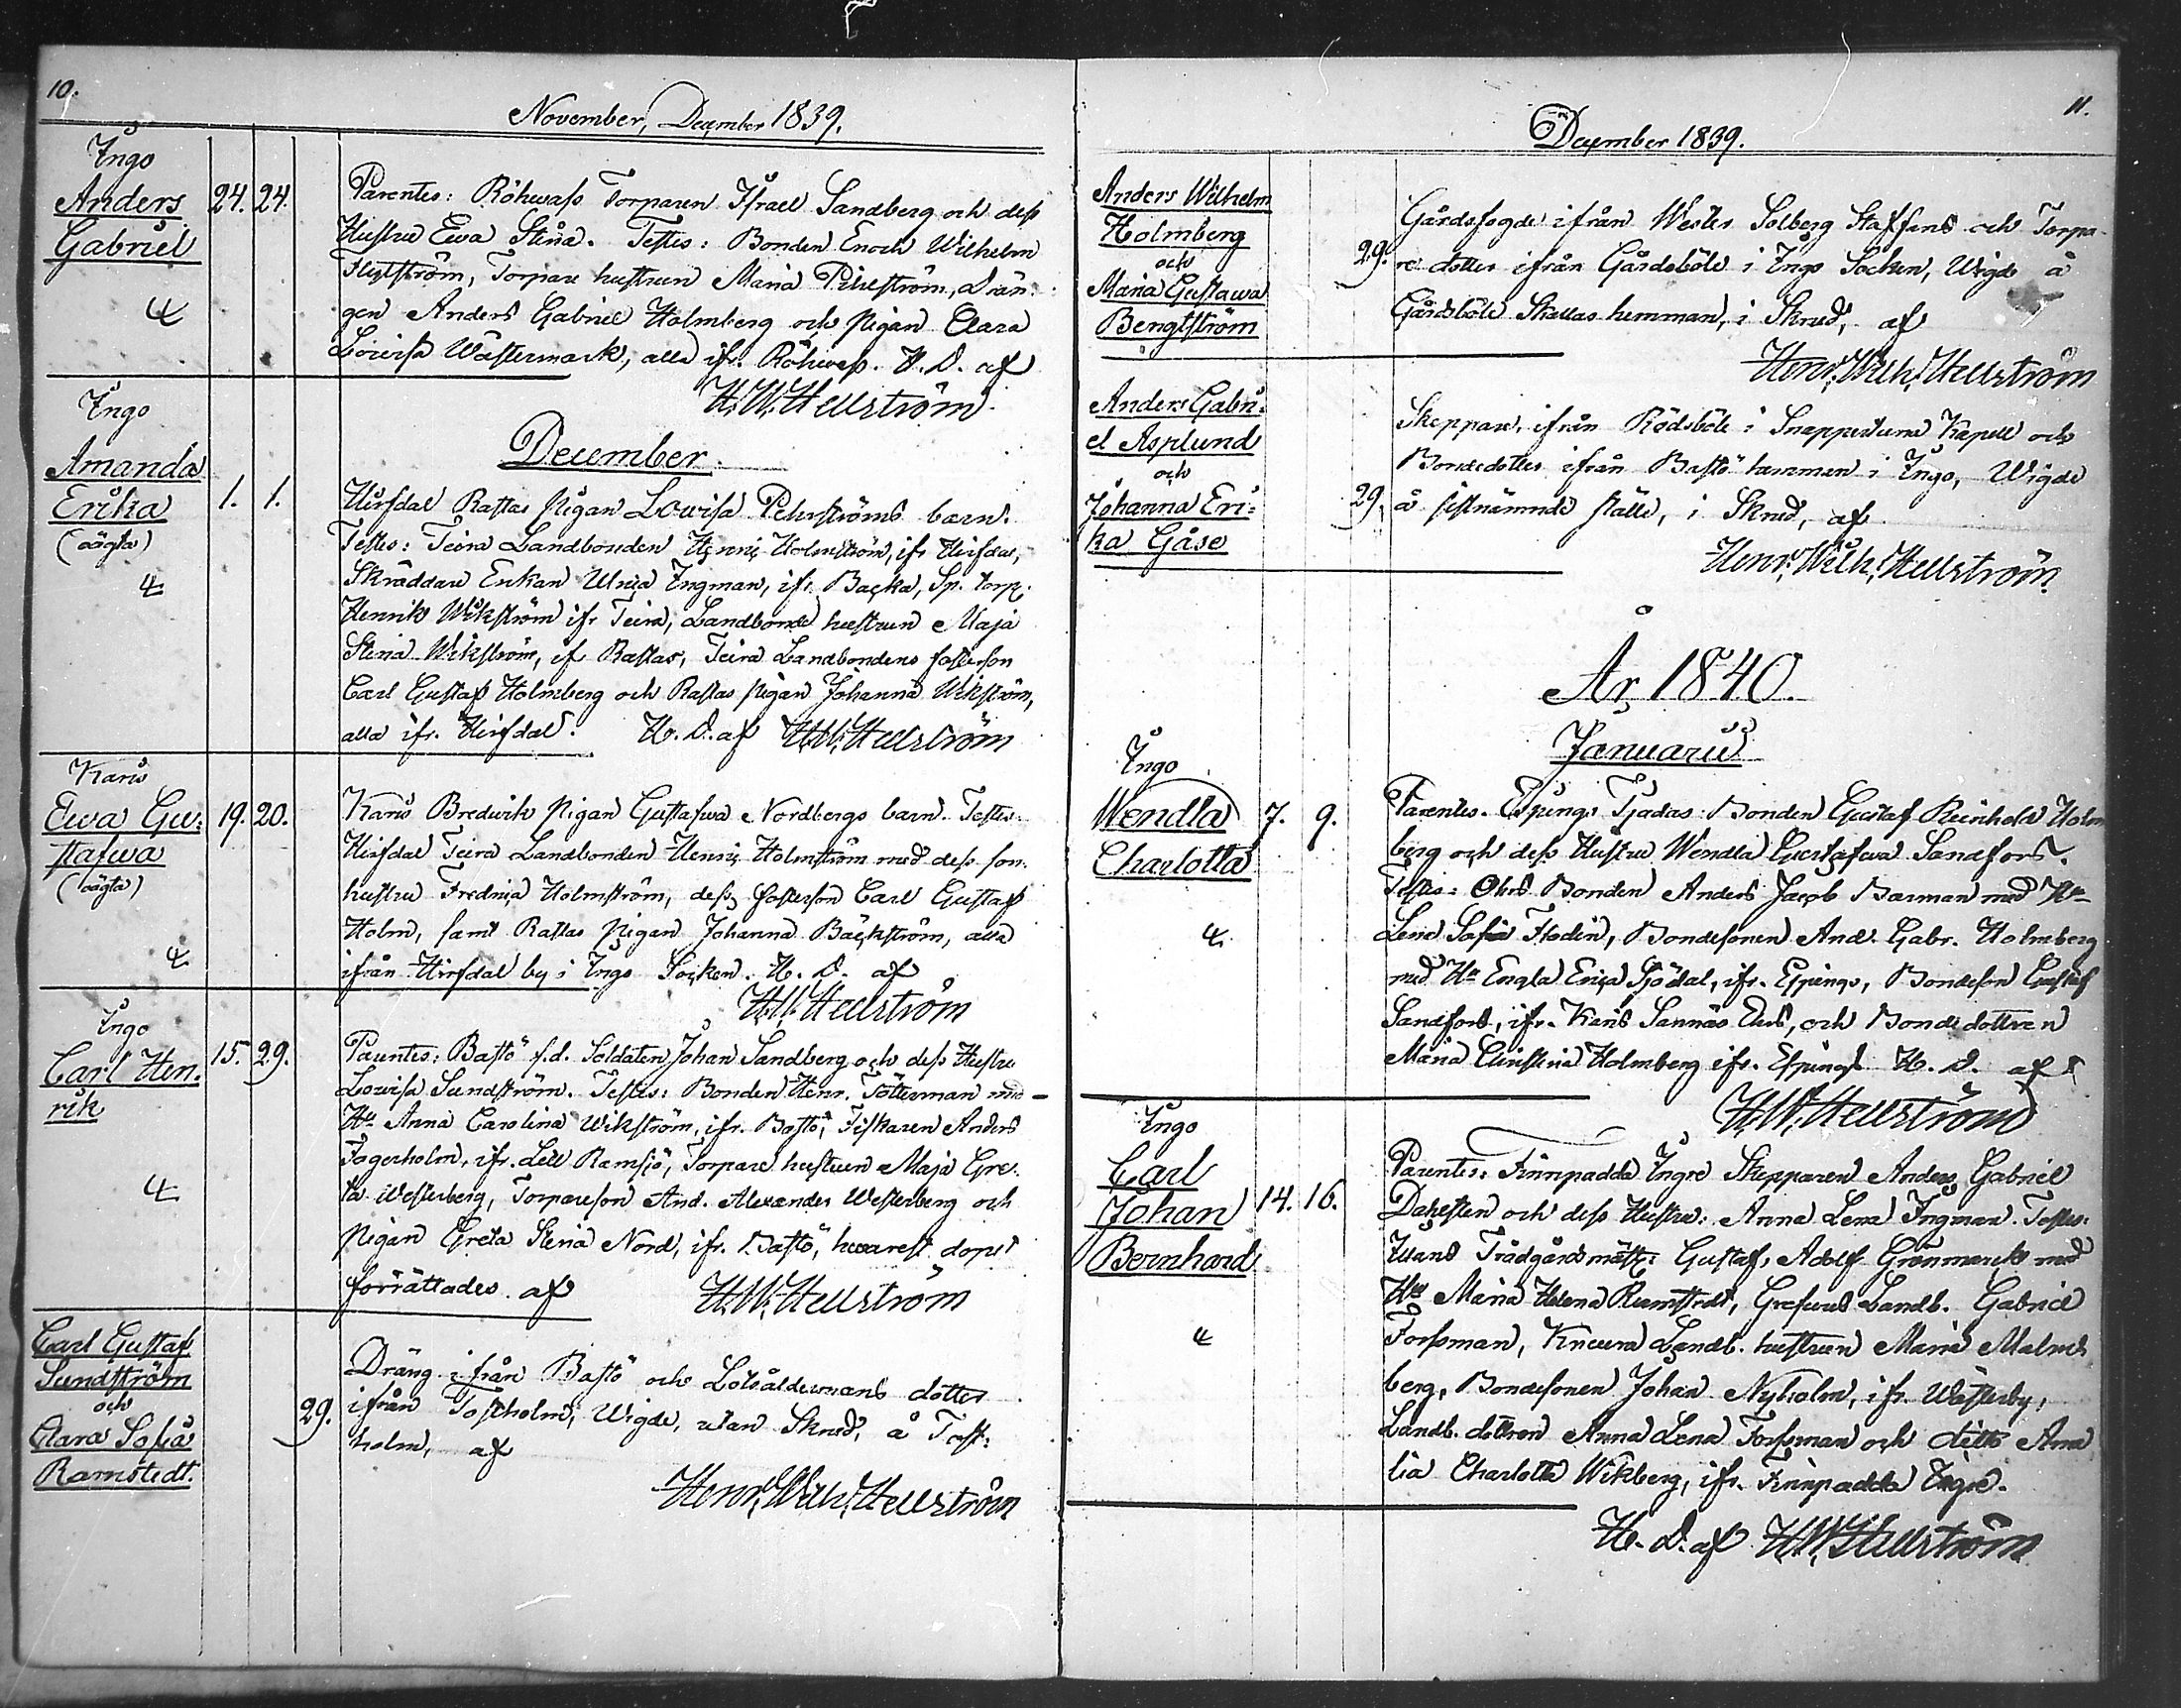 10.
November, December 1839.
Ingo
Anders
Gabriel
24. 24.
Parentes: Röhwass Torparen Israel Sandberg och dess
Hustru Ewa Stina. Testes: Bonden Enoch Wilhelm
Flytström, Torpare hustrun Maria Pihlström, Drän-
gen Anders Gabriel Holmberg och pigan Clara
Lowisa Wästermark, alla ifr. Röhwass. H. D. af
H.W. Hellström
December
Ingo
Amanda
Erika
(oägta)
1. 1.
Hirsdal Rastas pigan Lowisa Pehrströms barn.
Testes: Teira Landbonden Henric Holmström, ifr Hirsdal,
Skräddare Enkan Ulrica Ingman, ifr. Backa, Sp. torp.
Henrik Wikström ifr Teira, Landbonde hustrun Maja
Stina Wikström, if Rastas, Teira Landbondens fosterson
Carl Gustaf Holmberg och Rastas pigan Johanna Wikström,
alla ifr. Hirsdal. H. D. af H.W. Hellström
Karis
Ewa Gu-
stafwa
(oägta)
19. 20.
Karis Bredwik pigan Gustafwa Nordbergs barn. Testes:
Hirsdal Teira Landbonden Henric Holmström med dess son-
hustru Fredrica Holmström, dess fosterson Carl Gustaf
Holm, samt Rastas pigan Johanna Bäckström, alla
ifrån Hirsdal by i Ingo Socken. H. D. af
H.W. Hellström
Ingo
Carl Hen-
rik
15. 29.
Parentes: Bastö f.d. Soldaten Johan Sandberg och dess Hustru
Lowisa Sundström. Testes: Bonden Henr. Tötterman med
Hu Anna Carolina Wikström, ifr. Bastö, Fiskaren Anders
Fagerholm, ifr. Lill Ramsjö, Torpare hustrun Maja Gre-
ta Westerberg, Torpareson And. Alexander Westerberg och
pigan Greta Stina Nord, ifr. Bastö, hwarest dopet
förrättades af H.W. Hellström
Carl Gustaf
Sundström
och
Clara Sofia
Ramstedt.
29.
Dräng ifrån Bastö och Lotsåldermans dotter
ifrån Tostholm, Wigde, utan Skrud, å Tost-
holm, af
Henr. Wilh. Hellström
11.
December 1839.
Anders Wilhelm
Holmberg
och
Maria Gustawa
Bengtström
29.
Gårdsfogde ifrån Wester Solberg Staffans och Torpa-
re dotter ifrån Gårdsböle i Ingo Socken, Wigde å
Gårdsböle Skallas hemman, i Skrud, af
Henr. Wilh. Hellström
Anders Gabri-
el Asplund
och
Johanna Eri-
ka Gåse
29.
Skeppare, ifrån Rödsböle i Snappertuna Kapell och
Bondedotter ifrån Bastö hemman i Ingo, Wigde
å sistnämnde ställe, i Skrud, af
Henr. Wilh. Hellström
År 1840.
Januarii
Ingo
Wendla
Charlotta
7. 9.
Parentes. Espings Tjadas Bonden Gustaf Reinhold Holm-
berg och dess Hustru Wendla Gustafwa Sandfors.
Testes: Bonden Anders Jacob Barman med Hu
Lena Sofia Flodin, Bondesonen And. Gabr. Holmberg
med Hu Engla Erica Sjödal, ifr. Espings, Bondeson Gustaf
Sandfors, ifr. Karis Sannäs, och Bondedottren
Maria Christina Holmberg ifr. Espings H. D. af
H.W. Hellström
Ingo
Carl
Johan
Bernhard
14. 16.
Parentes: Finnpadda Ingre Skepparen Anders Gabriel
Dahlsten och dess Hustru: Anna Lena Ingman. Testes:
Trädgårdsmäst: Gustaf Adolf Grönmark med
Hu Maria Helena Ramstedt, Landb. Gabriel
Forssman, Landb. hustrun Maria Malm-
berg, Bondesonen Johan Nyholm, ifr. Wästerby,
Landb. dottren Anna Lena Forssman och ditto Ama-
lia Charlotta Wikberg, ifr. Finnpadda Ingre.
H. D. af H.W. Hellström